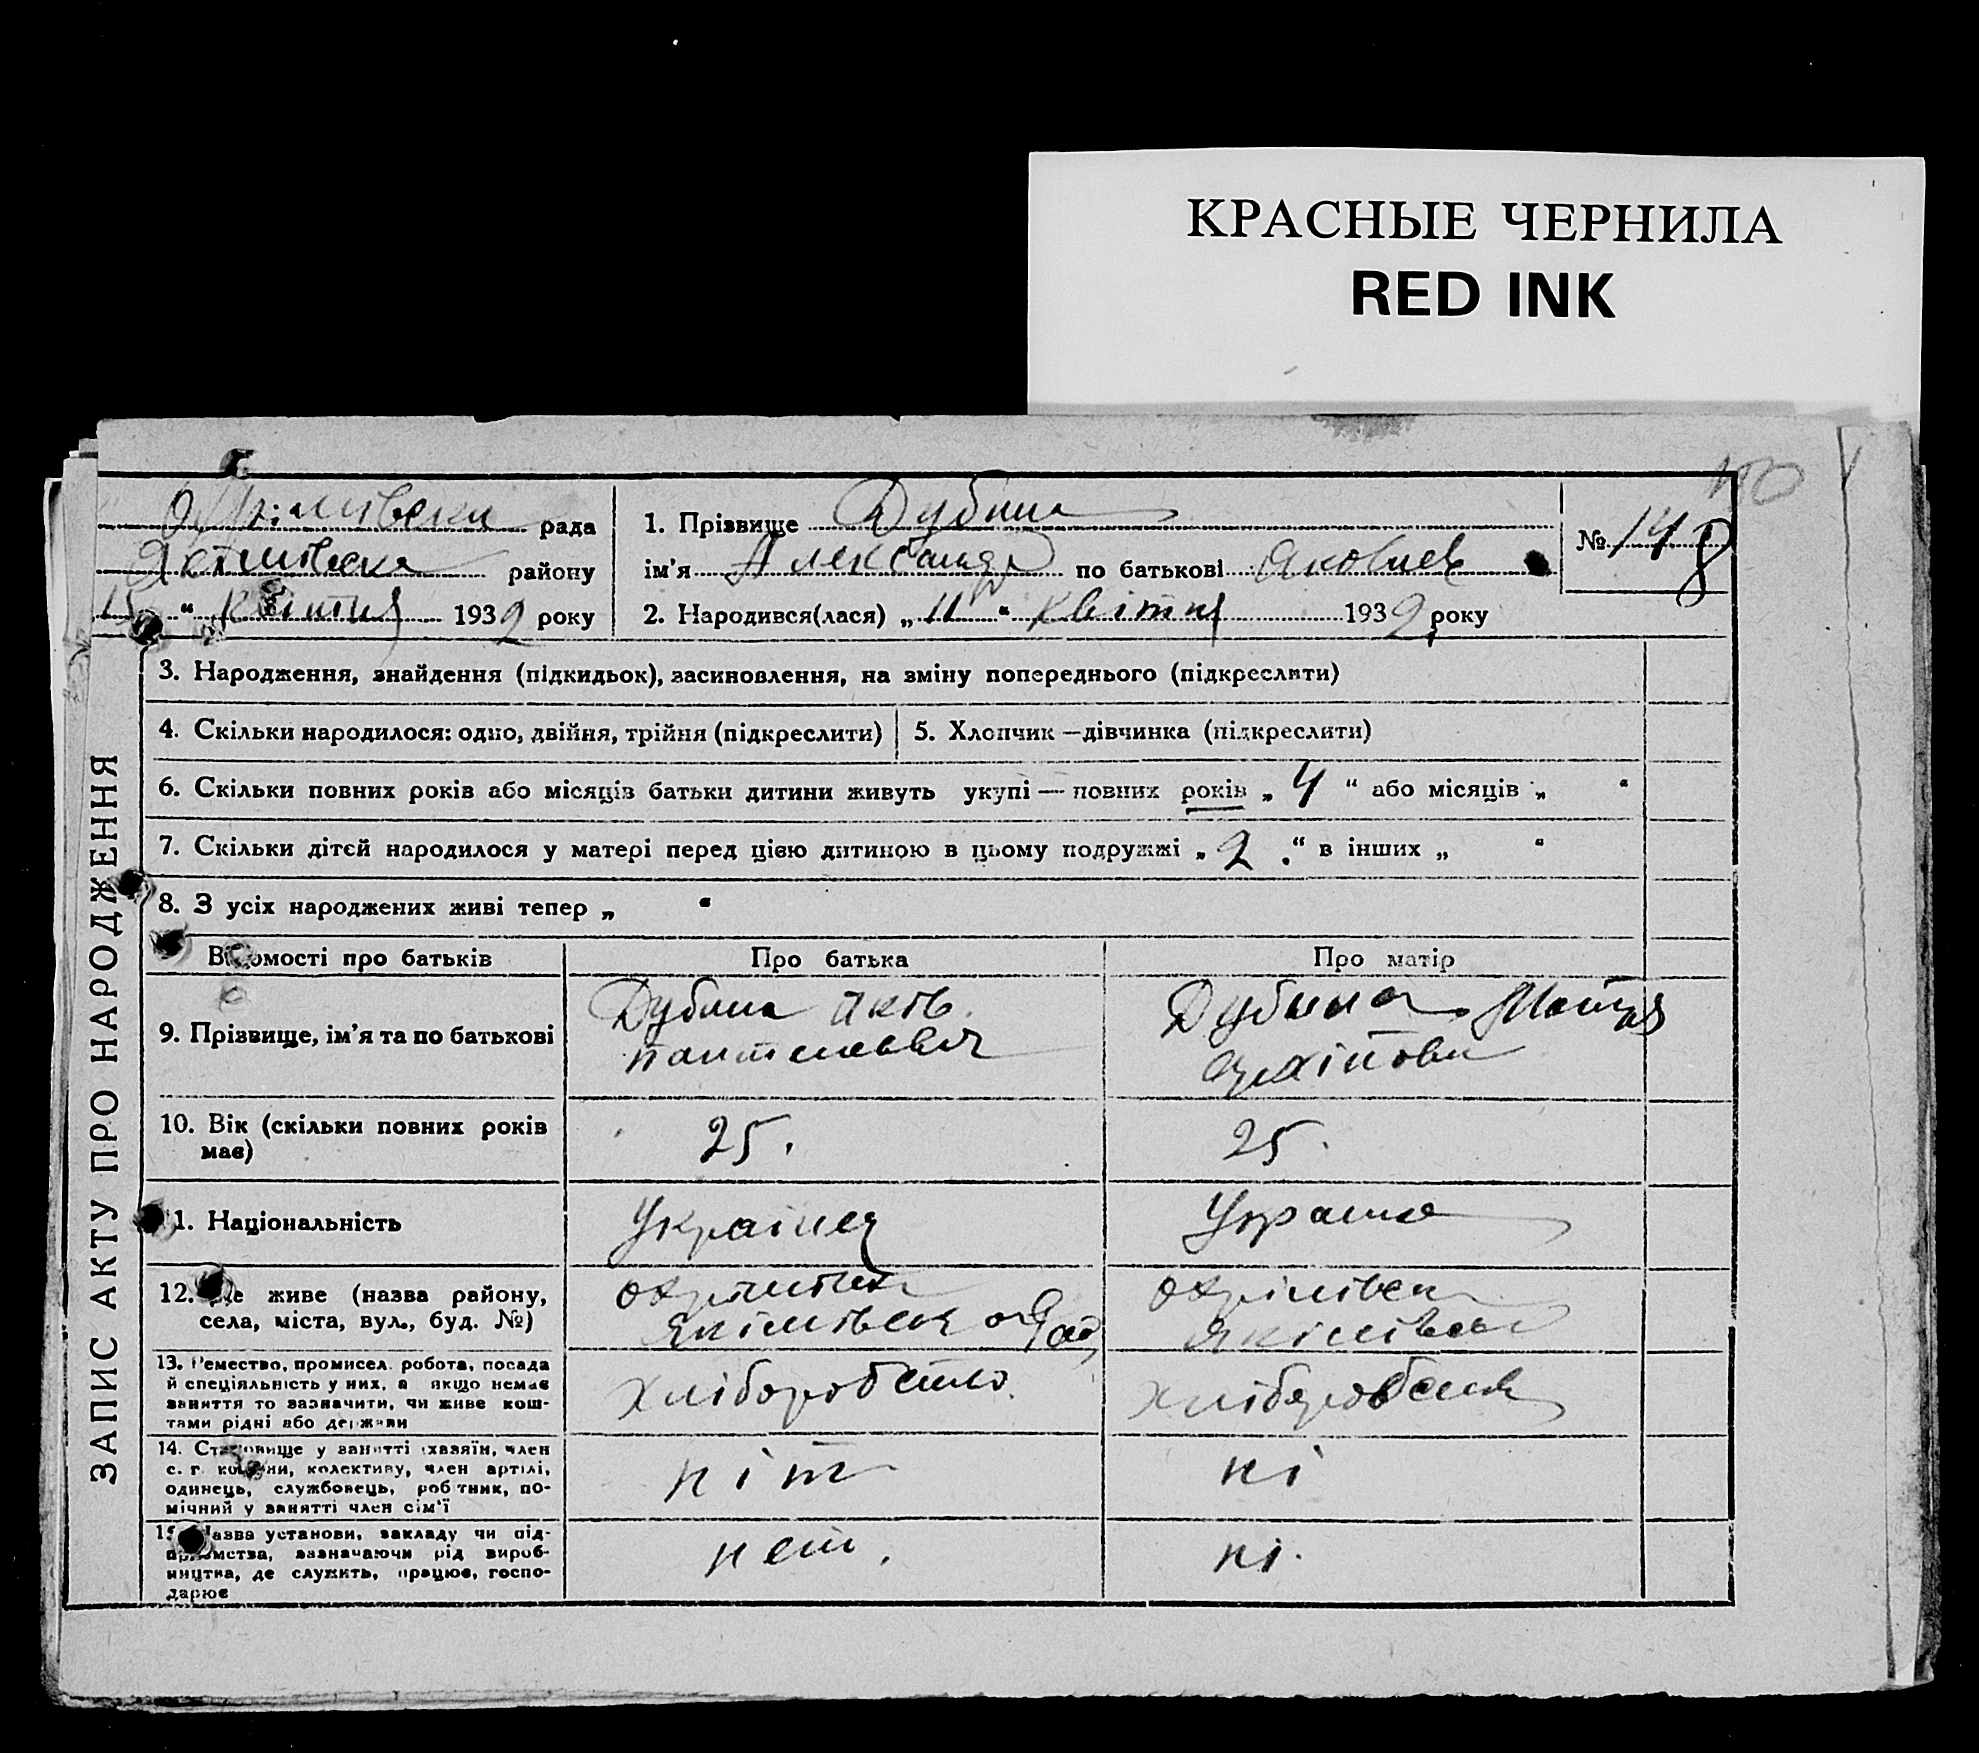 КРАСНЫЕ ЧЕРНИЛА
RED INK
рада
району
15 " квітня 1932 року
1. Прізвище Дубина
ім'я Александр по батькові Яковлев
2. Народився(лася) „ 11 " квітня 1932 року
№ 148
ЗАПИС АКТУ ПРО НАРОДЖЕННЯ
3. Народження, знайдення (підкидьок), засиновлення, на зміну попереднього (підкреслити)
4. Скільки народилося: одно, двійня, трійня (підкреслити)
5. Хлопчик — дівчинка (підкреслити)
6. Скільки повних років або місяців батьки дитини живуть укупі — повних років „ 4 " або місяців „ "
7. Скільки дітей народилося у матері перед цією дитиною в цьому подружжі „ 2 " в інших „ "
8. З усіх народжених живі тепер „ "
Відомості про батьків
Про батька
Про матір
9. Прізвище, ім'я та по батькові
Дубина Яків
Дубина
10. Вік (скільки повних років
має)
25.
25.
11. Національність
Українец
12. Де живе (назва району,
села, міста, вул., буд. №)
Охрімівск
Якімівск
13. Ремество, промисел, робота, посада
й спеціяльність у них, а якщо немає
заняття то зазначити, чи живе кош-
тами рідні або держави
Хліборобство
14. Становище у занятті (хазяїн, член
с. г. комуни, колективу, член артілі,
одинець, службовець, робітник, по-
мічний у занятті член сім'ї
ніт
ні
15. Назва установи, закладу чи під-
приємства, зазначаючи рід вироб-
ництва, де служить, працює, госпо-
дарює
нет.
ні.